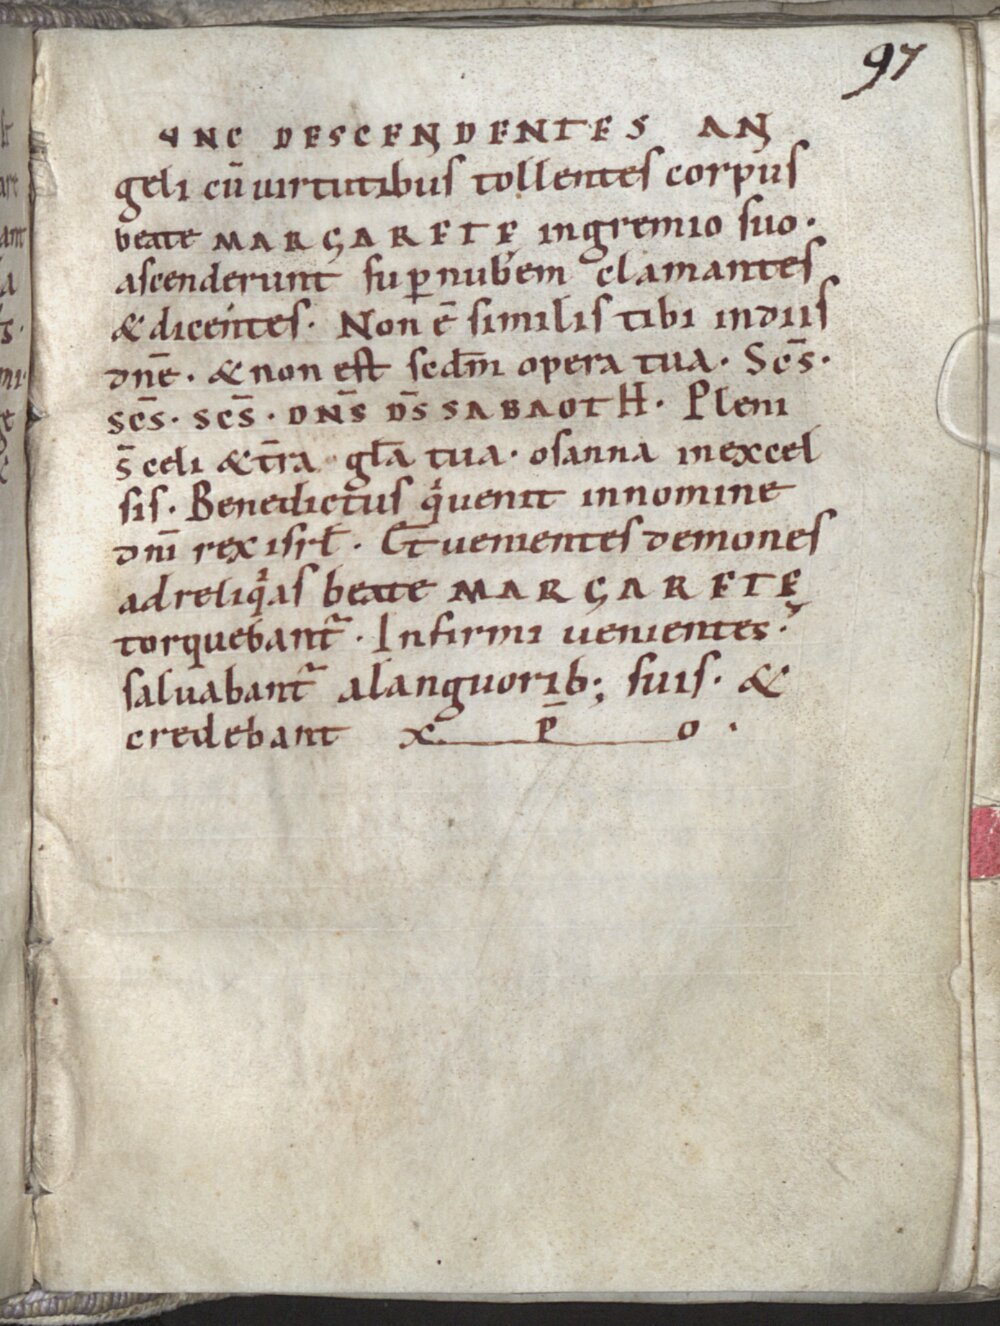 97
UNC DESCENDENTES AN
geli cū uirtutibus tollentes corpus
beate MARGARETĘ in gremio suo.
ascenderunt sup̱ nubem clamantes
& dicentes. Non ē similis tibi in diis
dn̄e. & non est scd̄m opera tua. Sc̄s.
sc̄s. sc̄s. DN̄S D̄S SABAOTH. Pleni
s̄ celi & t̄ra gl̄a tua. osanna in excel
sis. Benedictus qͥ uenit in nomine
dn̄i rex isrł. Et uenientes demones
ad reliqͥas beate MARGARETĘ
torquebant᷑. Infirmi uenientes.
saluabant᷑ a languorib; suis. &
credebant x p̄ o.